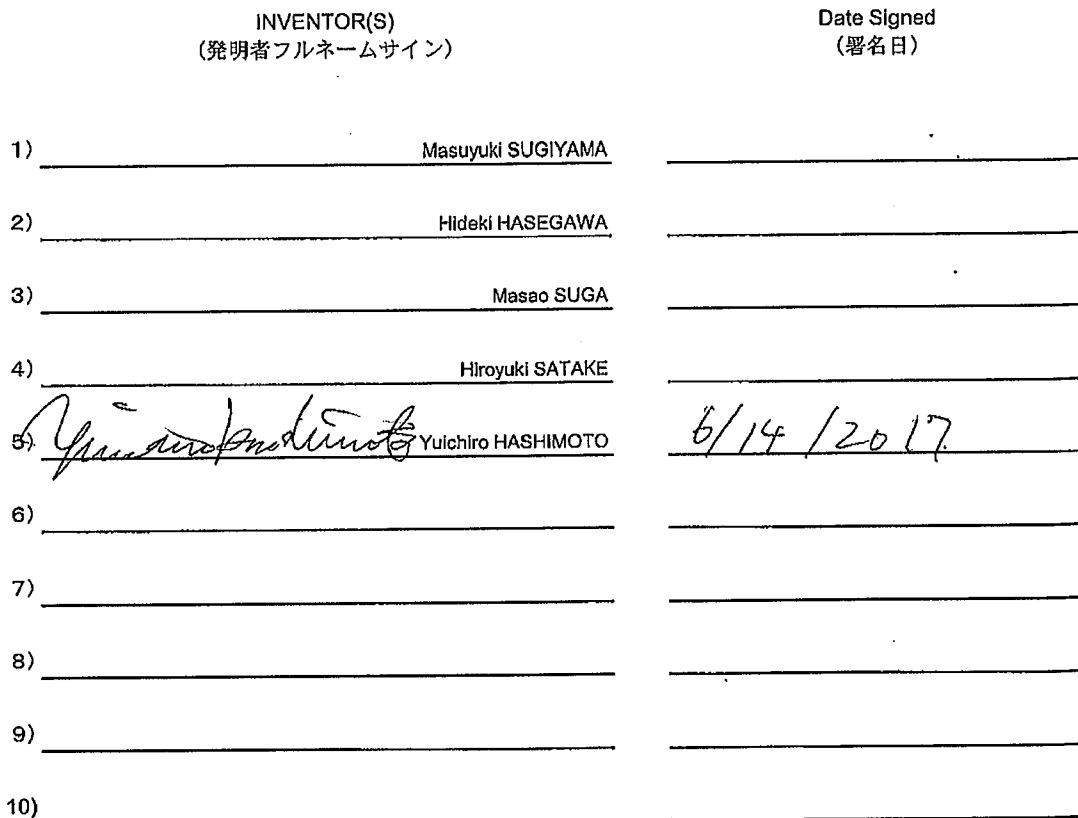 INVENTOR(S) Date Signed
(発明者フルネームサイン) (署名日)
1) Masuyuki SUGIYAMA
2) Hideki HASEGAWA
3) Masao SUGA
4) Hiroyuki SATAKE
5) Yuichiro Hashimoto Yuichiro HASHIMOTO 6/14/2017
6)
7)
8)
9)
10)